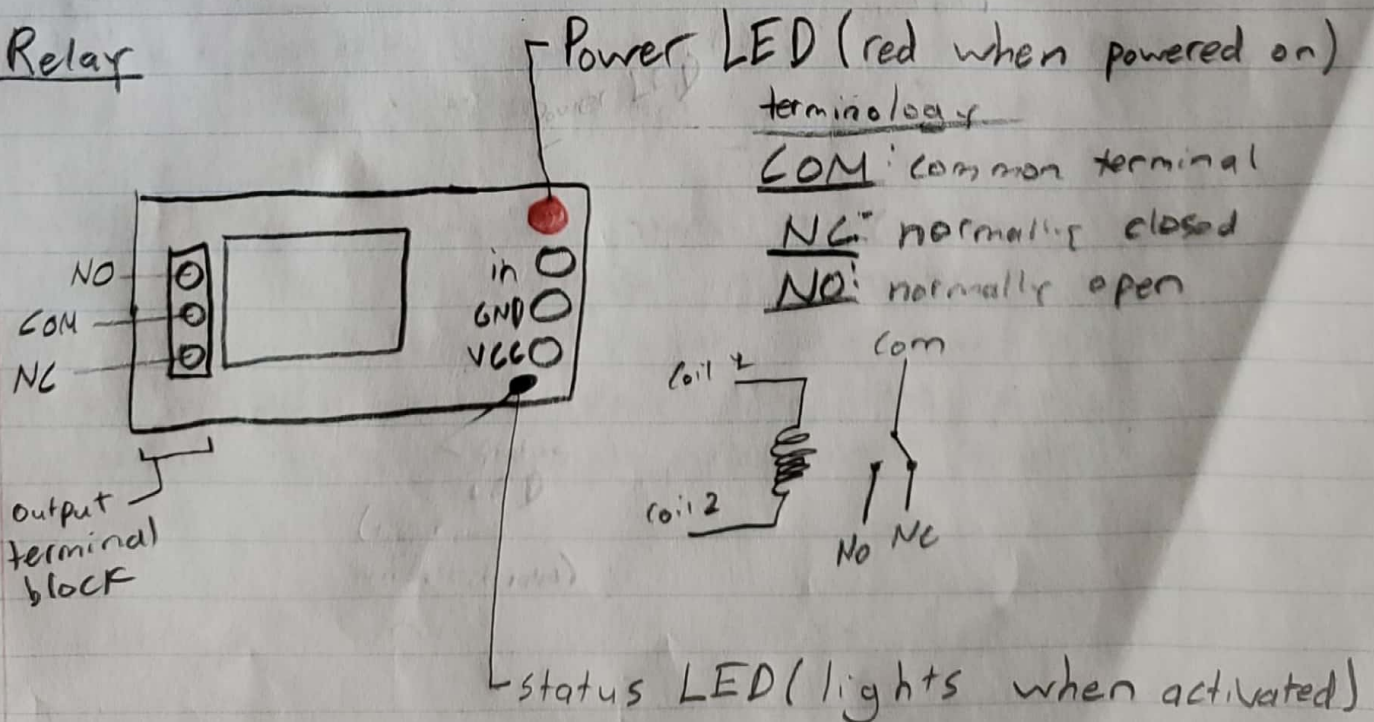 Relay
Power LED (red when powered on)
terminology
COM: common terminal
NC: normally closed
NO: normally open
NO
COM
NC
in
GND
VCC
output
terminal
block
Coil 1
Coil 2
Com
NO
NC
status LED (lights when activated)